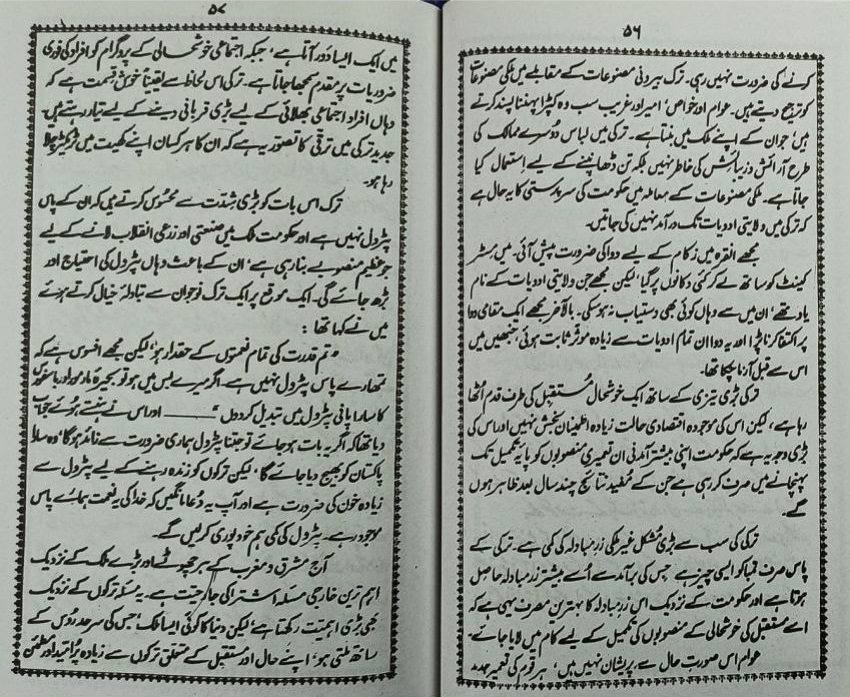 ۵۶
کرنے کی ضرورت نہیں رہی۔ ترک بیرونی مصنوعات کے مقابلے میں ملکی مصنوعات
کو ترجیح دیتے ہیں۔ عوام اور خواص، امیر اور غریب سب وہ کپڑا پہننا پسند کرتے
ہیں، جو ان کے اپنے ملک میں بنتا ہے۔ ترکی میں لباس دوسرے ممالک کی
طرح آرائش و زیبائش کی خاطر نہیں بلکہ تن ڈھانپنے کے لیے استعمال کیا
جاتا ہے۔ ملکی مصنوعات کے معاملہ میں حکومت کی سرپرستی کا یہ حال ہے
کہ ترکی میں ولایتی ادویات تک درآمد نہیں کی جاتیں۔
مجھے انقرہ میں زکام کے لیے دوا کی ضرورت پیش آئی۔ میں مسٹر
کینٹ کو ساتھ لے کر کئی دکانوں پر گیا، لیکن مجھے جن ولایتی ادویات کے نام
یاد تھے، ان میں سے وہاں کوئی بھی دستیاب نہ ہو سکی۔ بالآخر مجھے ایک مقامی دوا
پر اکتفا کرنا پڑا اور یہ دوا ان تمام ادویات سے زیادہ موثر ثابت ہوئی، جنھیں میں
اس سے قبل آزما چکا تھا۔
ترکی بڑی تیزی کے ساتھ ایک خوشحال مستقبل کی طرف قدم اُٹھا
رہا ہے، لیکن اس کی موجودہ اقتصادی حالت زیادہ اطمینان بخش نہیں اور اس کی
بڑی وجہ یہ ہے کہ حکومت اپنی بیشتر آمدنی ان تعمیری منصوبوں کو پایۂ تکمیل تک
پہنچانے میں صرف کر رہی ہے جن کے مُفید نتائج چند سال بعد ظاہر ہوں
گے۔
ترکی کی سب سے بڑی مُشکل غیر ملکی زرِ مبادلہ کی کمی ہے۔ ترکی کے
پاس صرف تمباکو ایسی چیز ہے جس کی برآمد سے اُسے بیشتر زرِ مبادلہ حاصل
ہوتا ہے اور حکومت کے نزدیک اس زرِ مبادلہ کا بہترین مصرف یہی ہے کہ
اسے مستقبل کی خوشحالی کے منصوبوں کی تکمیل کے لیے کام میں لایا جائے۔
عوام اس صورتِ حال سے پریشان نہیں ہیں، ہر قوم کی تعمیرِ جدید
۵۷
میں ایک ایسا دَور آتا ہے، جبکہ اجتماعی خوشحالی کے پروگرام کو افراد کی فوری
ضروریات پر مقدم سمجھا جاتا ہے۔ ترکی اس لحاظ سے یقیناً خوش قسمت ہے کہ
وہاں افراد اجتماعی بھلائی کے لیے بڑی قربانی دینے کے لیے تیار رہتے ہیں۔
جدید ترکی میں ترقی کا تصور یہ ہے کہ ان کا ہر کسان اپنے کھیت میں ٹریکٹر چلا
رہا ہو۔
ترک اس بات کو بڑی شدّت سے محسوس کرتے ہیں کہ ان کے پاس
پٹرول نہیں ہے اور حکومت ملک میں صنعتی اور زرعی انقلاب لانے کے لیے
جو عظیم منصوبے بنا رہی ہے، ان کے باعث وہاں پٹرول کی احتیاج اور
بڑھ جائے گی۔ ایک موقع پر ایک ترک نوجوان سے تبادلۂ خیال کرتے ہوئے
میں نے کہا تھا :
"تم قدرت کی تمام نعمتوں کے حقدار ہو، لیکن مجھے افسوس ہے کہ
تمھارے پاس پٹرول نہیں ہے۔ اگر میرے بس میں ہو تو بحیرۂ مارمورا اور باسفورس
کا سارا پانی پٹرول میں تبدیل کر دوں" ــــــــ اور اس نے ہنستے ہوئے جواب
دیا تھا کہ اگر یہ بات ہو جائے تو جتنا پٹرول ہماری ضرورت سے زائد ہوگا، وہ سارا
پاکستان کو بھیج دیا جائے گا، لیکن ترکوں کو زندہ رہنے کے لیے پٹرول سے
زیادہ خون کی ضرورت ہے اور آپ یہ دُعا مانگیں کہ خدا کی یہ نعمت ہمارے پاس
موجود رہے۔ پٹرول کی کمی ہم خود پوری کر لیں گے۔
آج مشرق و مغرب کے ہر چھوٹے اور بڑے ملک کے نزدیک
اہم ترین خارجی مسئلہ اشتراکی جارحیت ہے۔ یہ مسئلہ ترکوں کے نزدیک
بھی بڑی اہمیت رکھتا ہے، لیکن دنیا کا کوئی ایسا ملک، جس کی سرحد روس کے
ساتھ ملتی ہو، اپنے حال اور مستقبل کے متعلق ترکوں سے زیادہ پُر امید اور مطمئن